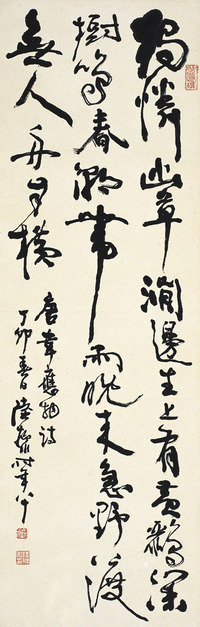 獨憐幽草澗邊生上有黃鸝深
樹鳴春潮帶雨晚來急野渡
無人舟自橫
唐韋應物詩
丁卯春日陸時年八十